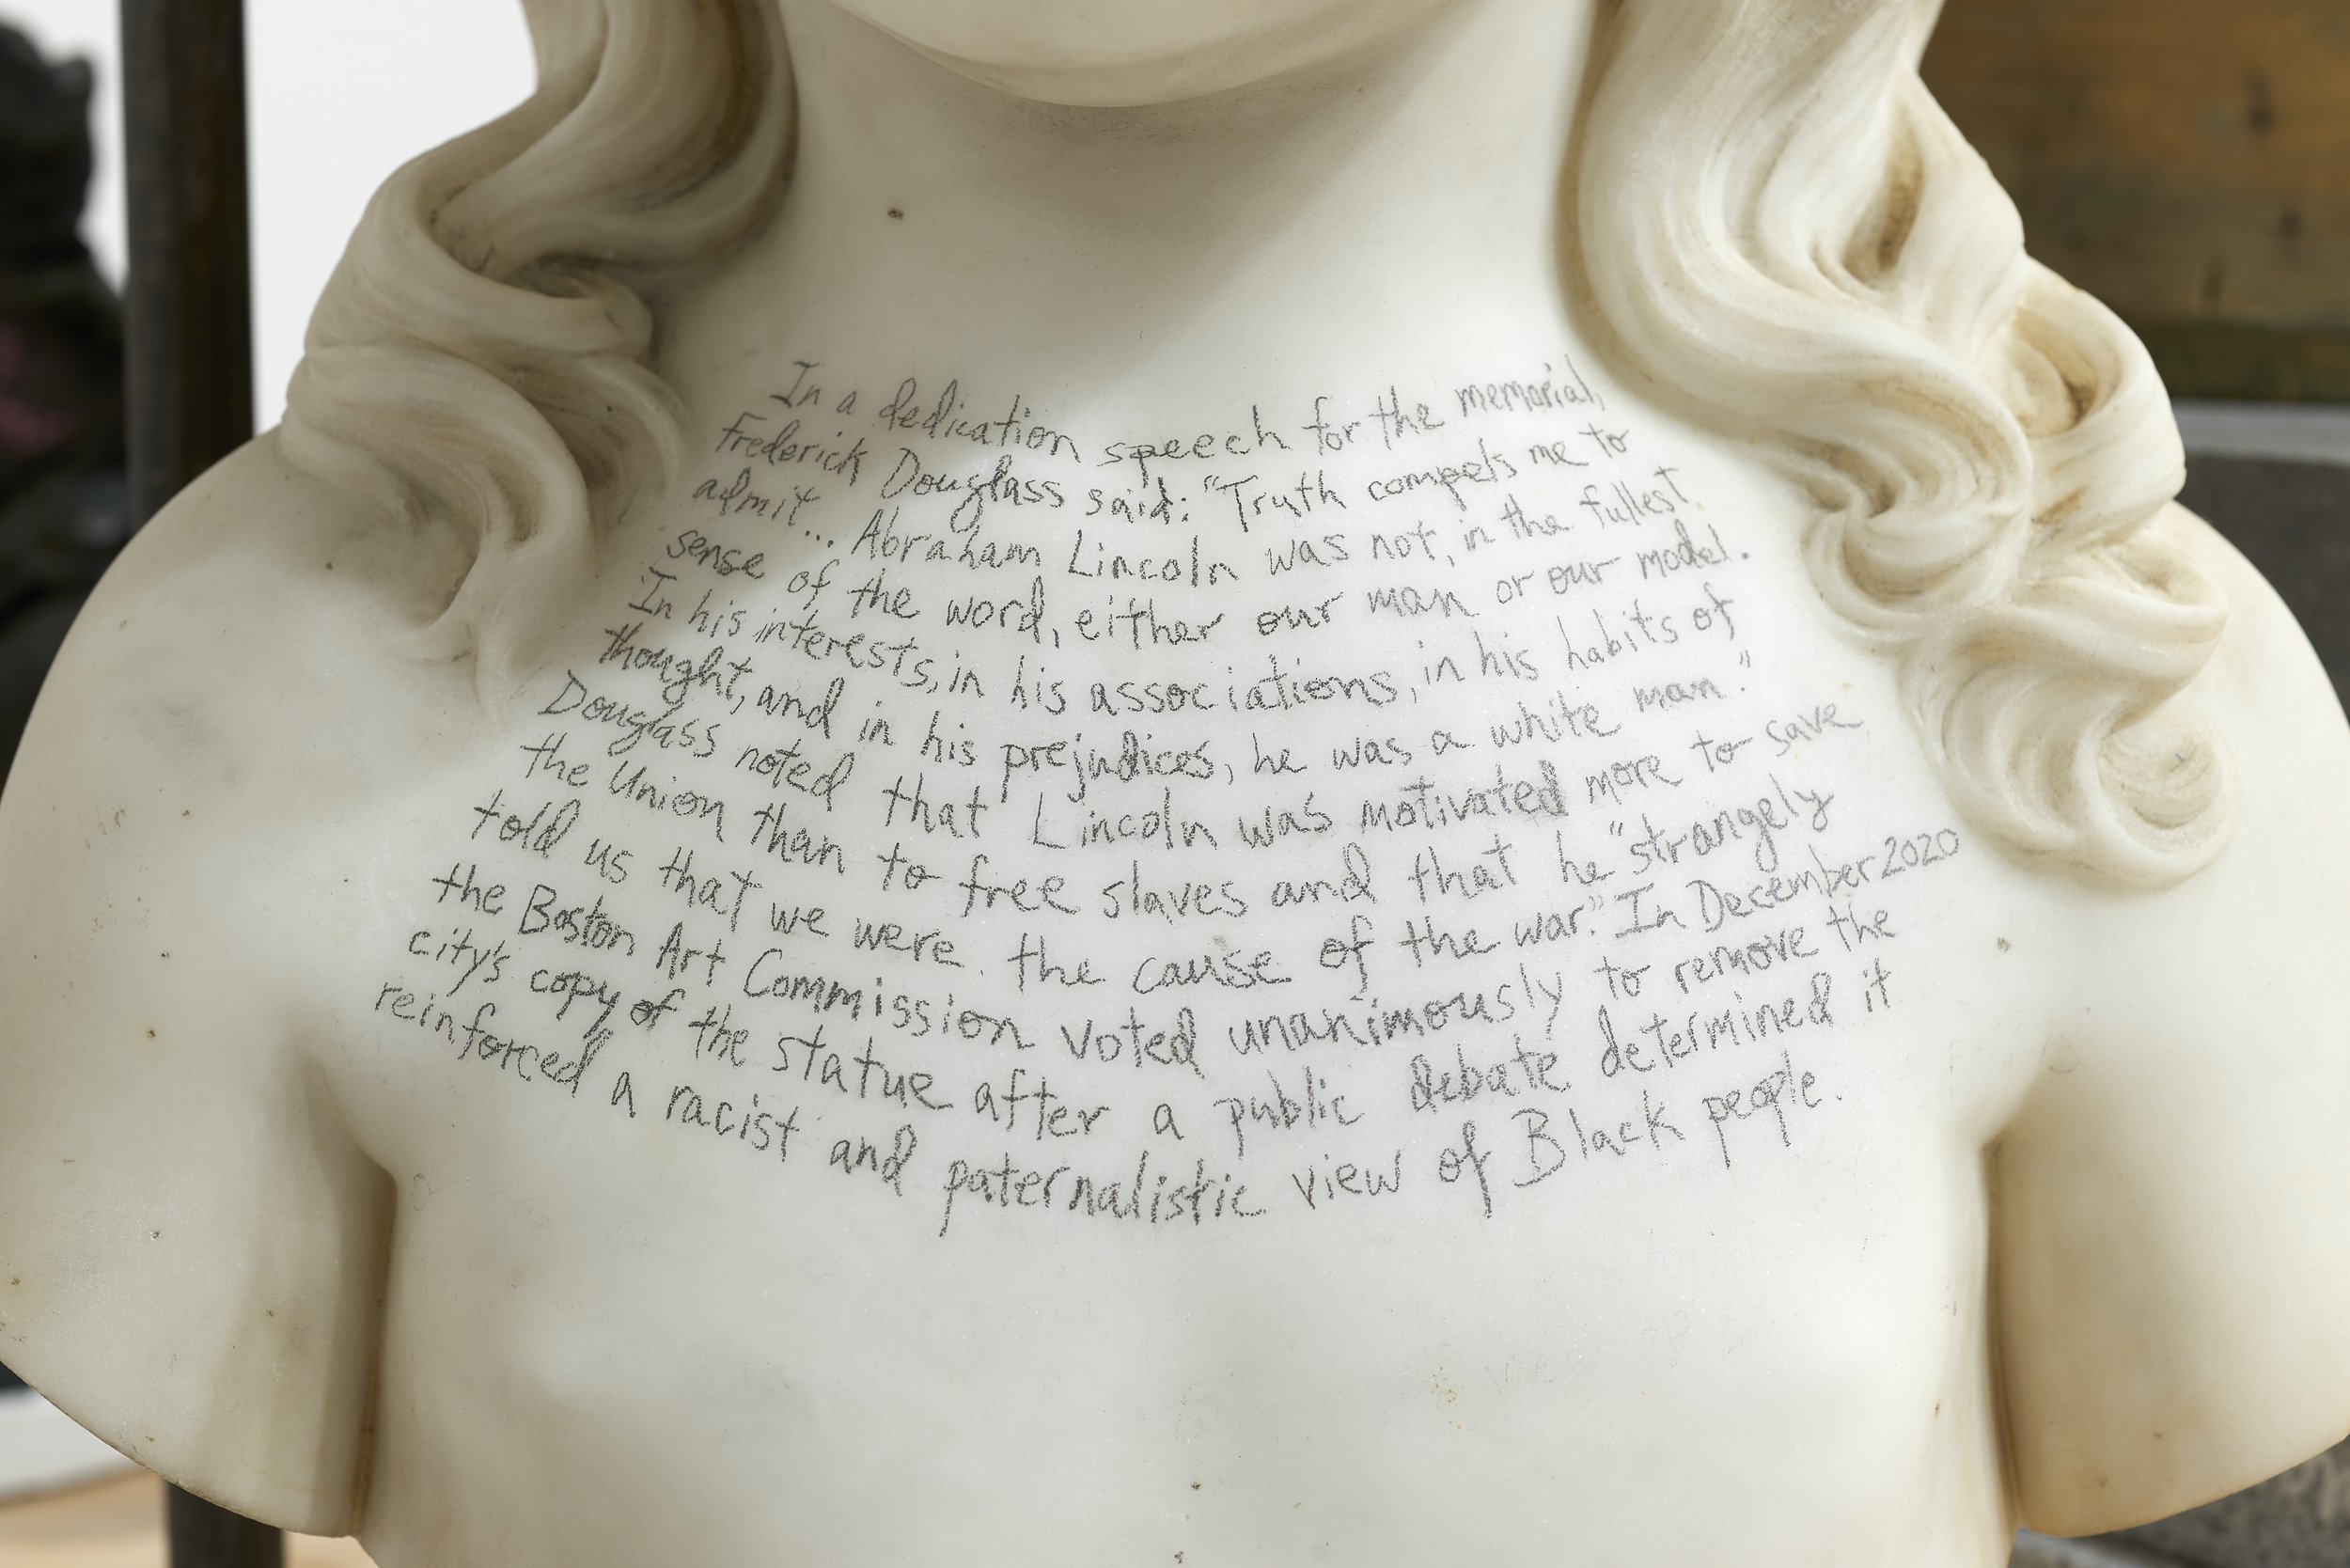 In a dedication speech for the memorial,
Frederick Douglass said: "Truth compels me to
admit ... Abraham Lincoln was not, in the fullest
sense of the word, either our man or our model.
In his interests, in his associations, in his habits of
thought, and in his prejudices, he was a white man."
Douglass noted that Lincoln was motivated more to save
the Union than to free slaves and that he "strangely
told us that we were the cause of the war." In December 2020
the Boston Art Commission voted unanimously to remove the
city's copy of the statue after a public debate determined it
reinforced a racist and paternalistic view of Black people.